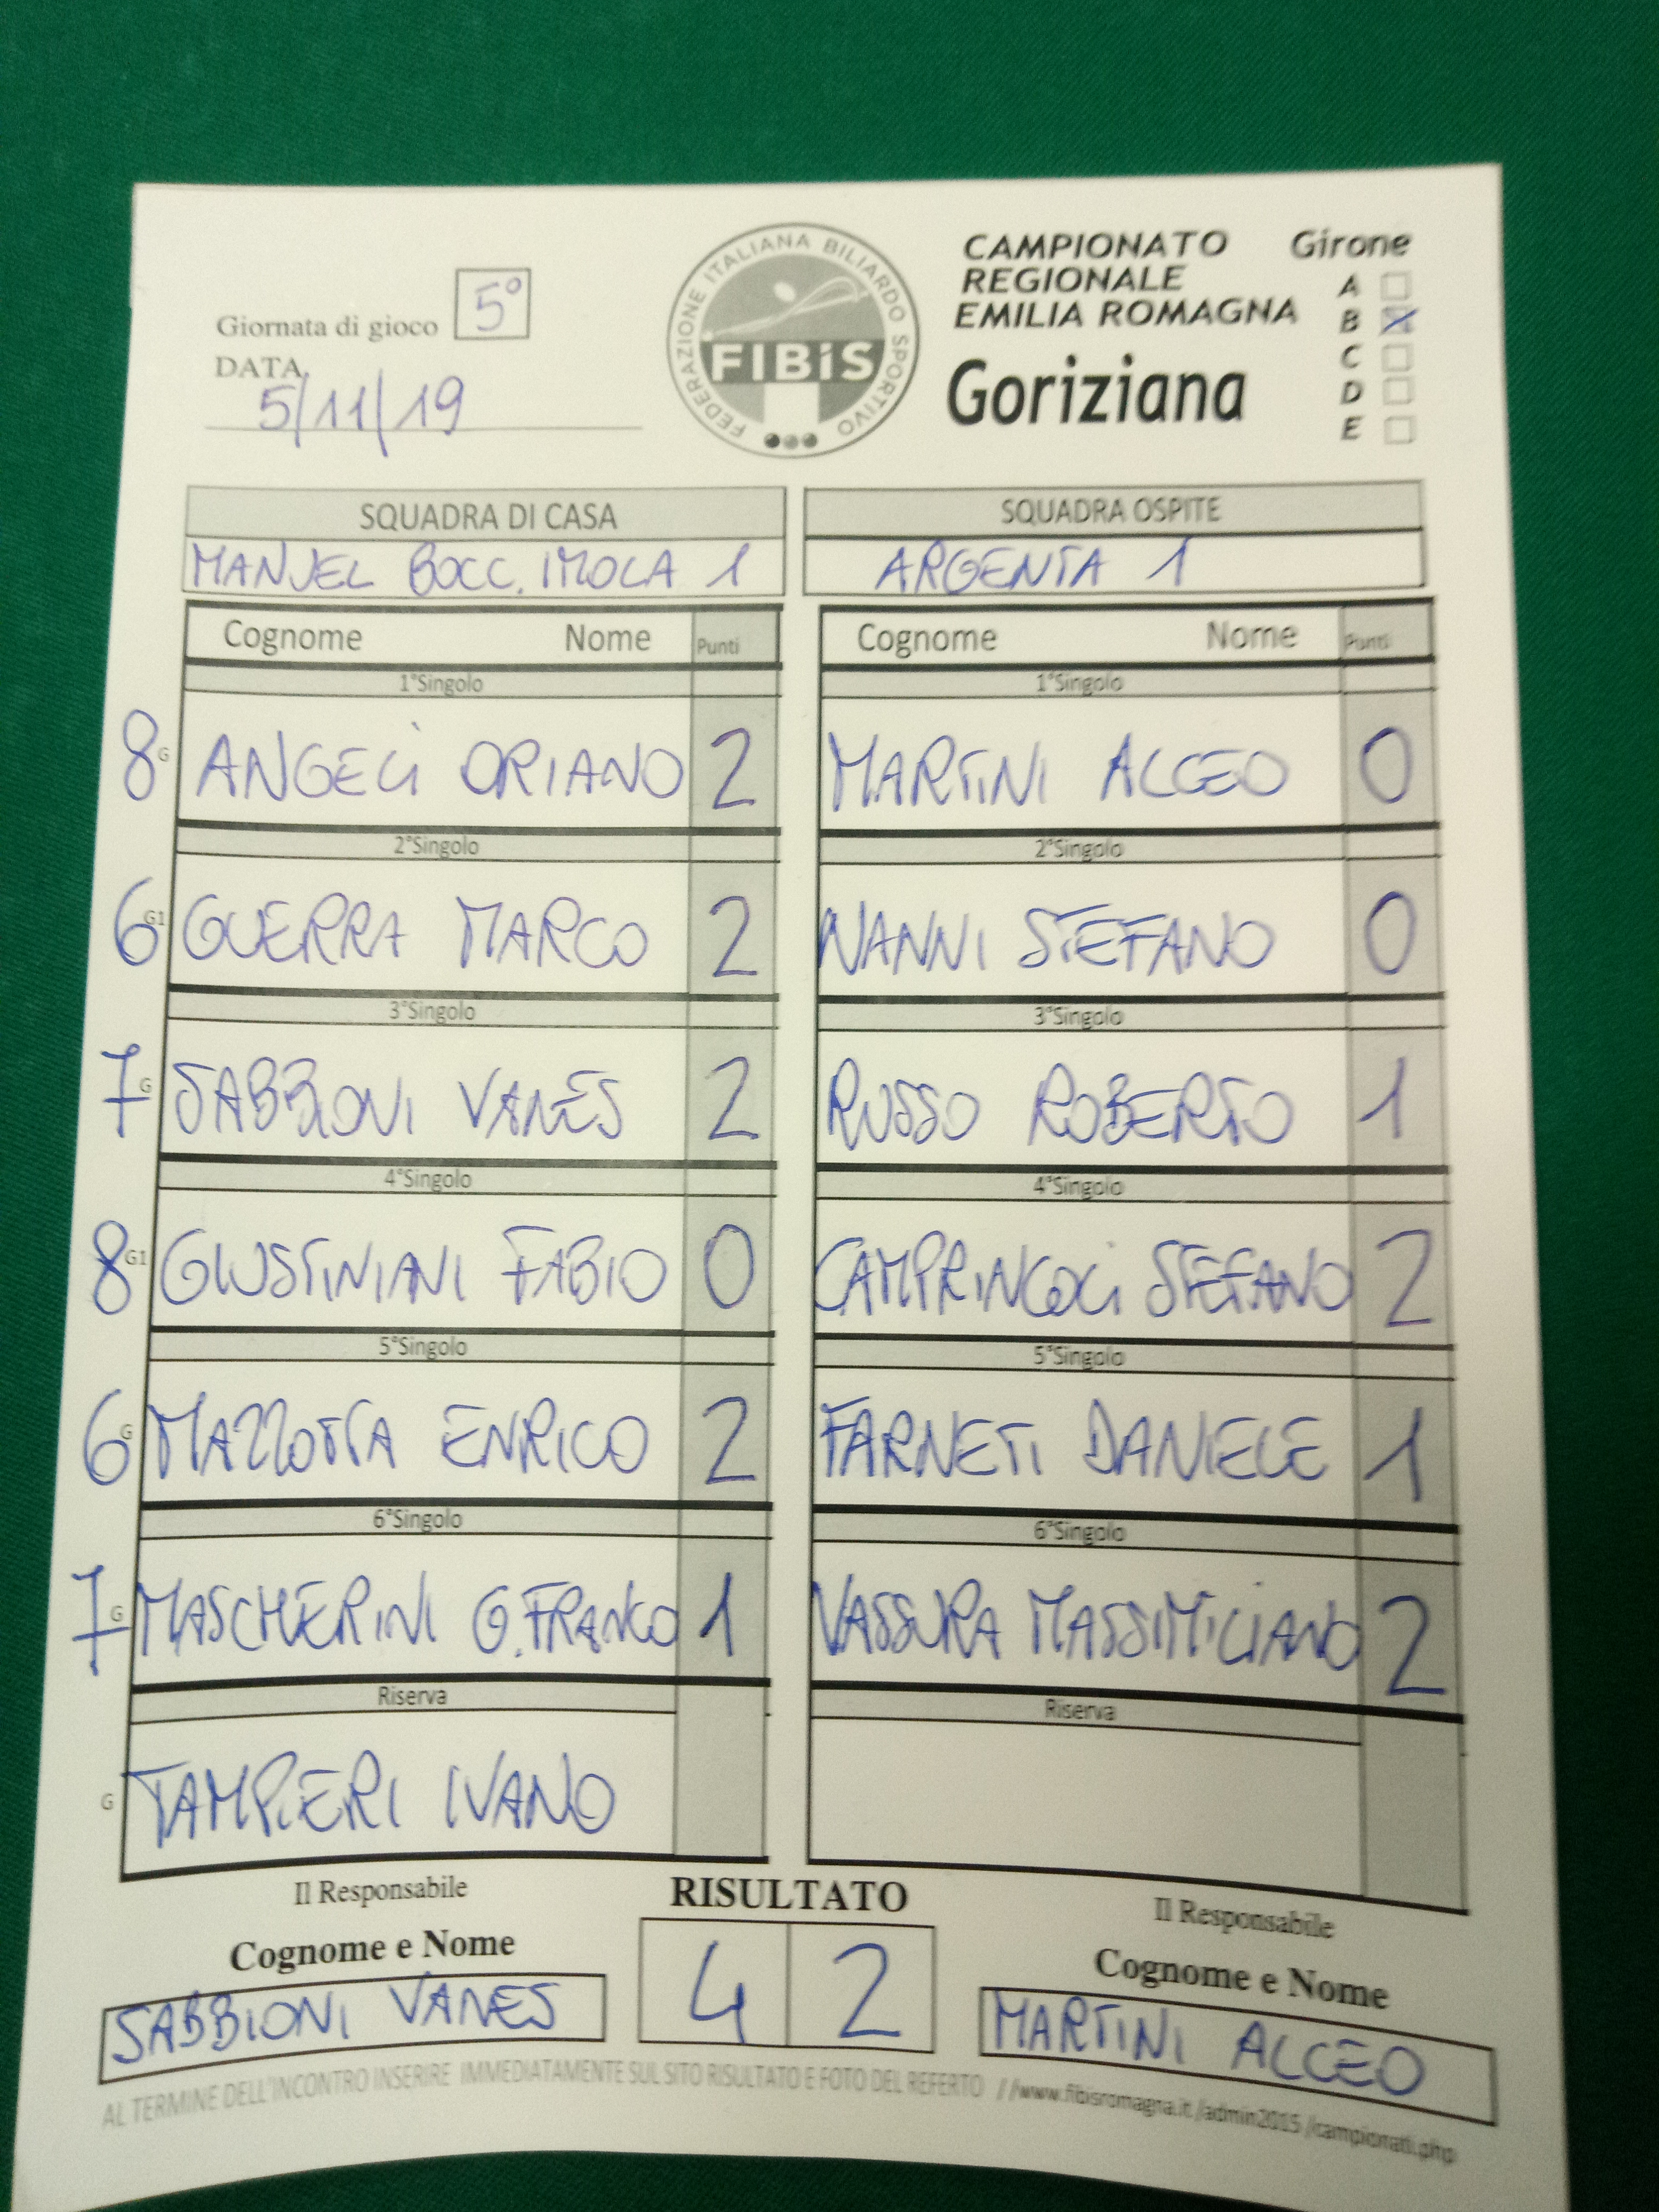 Giornata di gioco 5°
DATA
5/11/19
FEDERAZIONE ITALIANA BILIARDO SPORTIVO
FIBiS
CAMPIONATO
REGIONALE
EMILIA ROMAGNA
Goriziana
Girone
A
B X
C
D
E
SQUADRA DI CASA
MANUEL BOCC. IMOLA 1
SQUADRA OSPITE
ARGENTA 1
Cognome Nome Punti Cognome Nome Punti
1°Singolo 1°Singolo
8 G ANGELI ORIANO 2 MARTINI ALCEO 0
2°Singolo 2°Singolo
6 G1 GUERRA MARCO 2 NANNI STEFANO 0
3°Singolo 3°Singolo
7 G SABBIONI VANES 2 RUSSO ROBERTO 1
4°Singolo 4°Singolo
8 G1 GIUSTINIANI FABIO 0 STEFANO 2
5°Singolo 5°Singolo
6 G MAZZOTTA ENRICO 2 FARNETI DANIELE 1
6°Singolo 6°Singolo
7 G MASCHERINI G.FRANCO 1 VASSURA MASSIMILIANO 2
Riserva Riserva
G TAMPIERI IVANO
Il Responsabile RISULTATO Il Responsabile
Cognome e Nome 4 2 Cognome e Nome
SABBIONI VANES MARTINI ALCEO
AL TERMINE DELL'INCONTRO INSERIRE IMMEDIATAMENTE SUL SITO RISULTATO E FOTO DEL REFERTO //www.fibisromagna.it /admin2015 /campionati.php